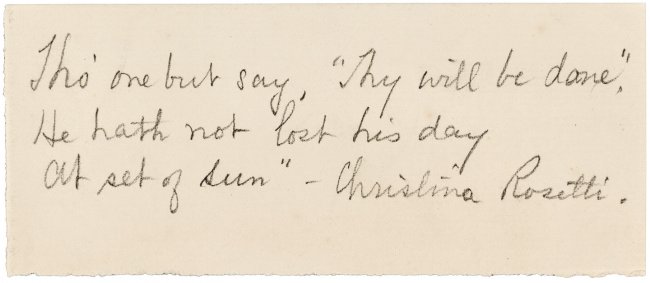 Tho' one but say, "Thy will be done",
He hath not lost his day
At set of sun" - Christina Rosetti.